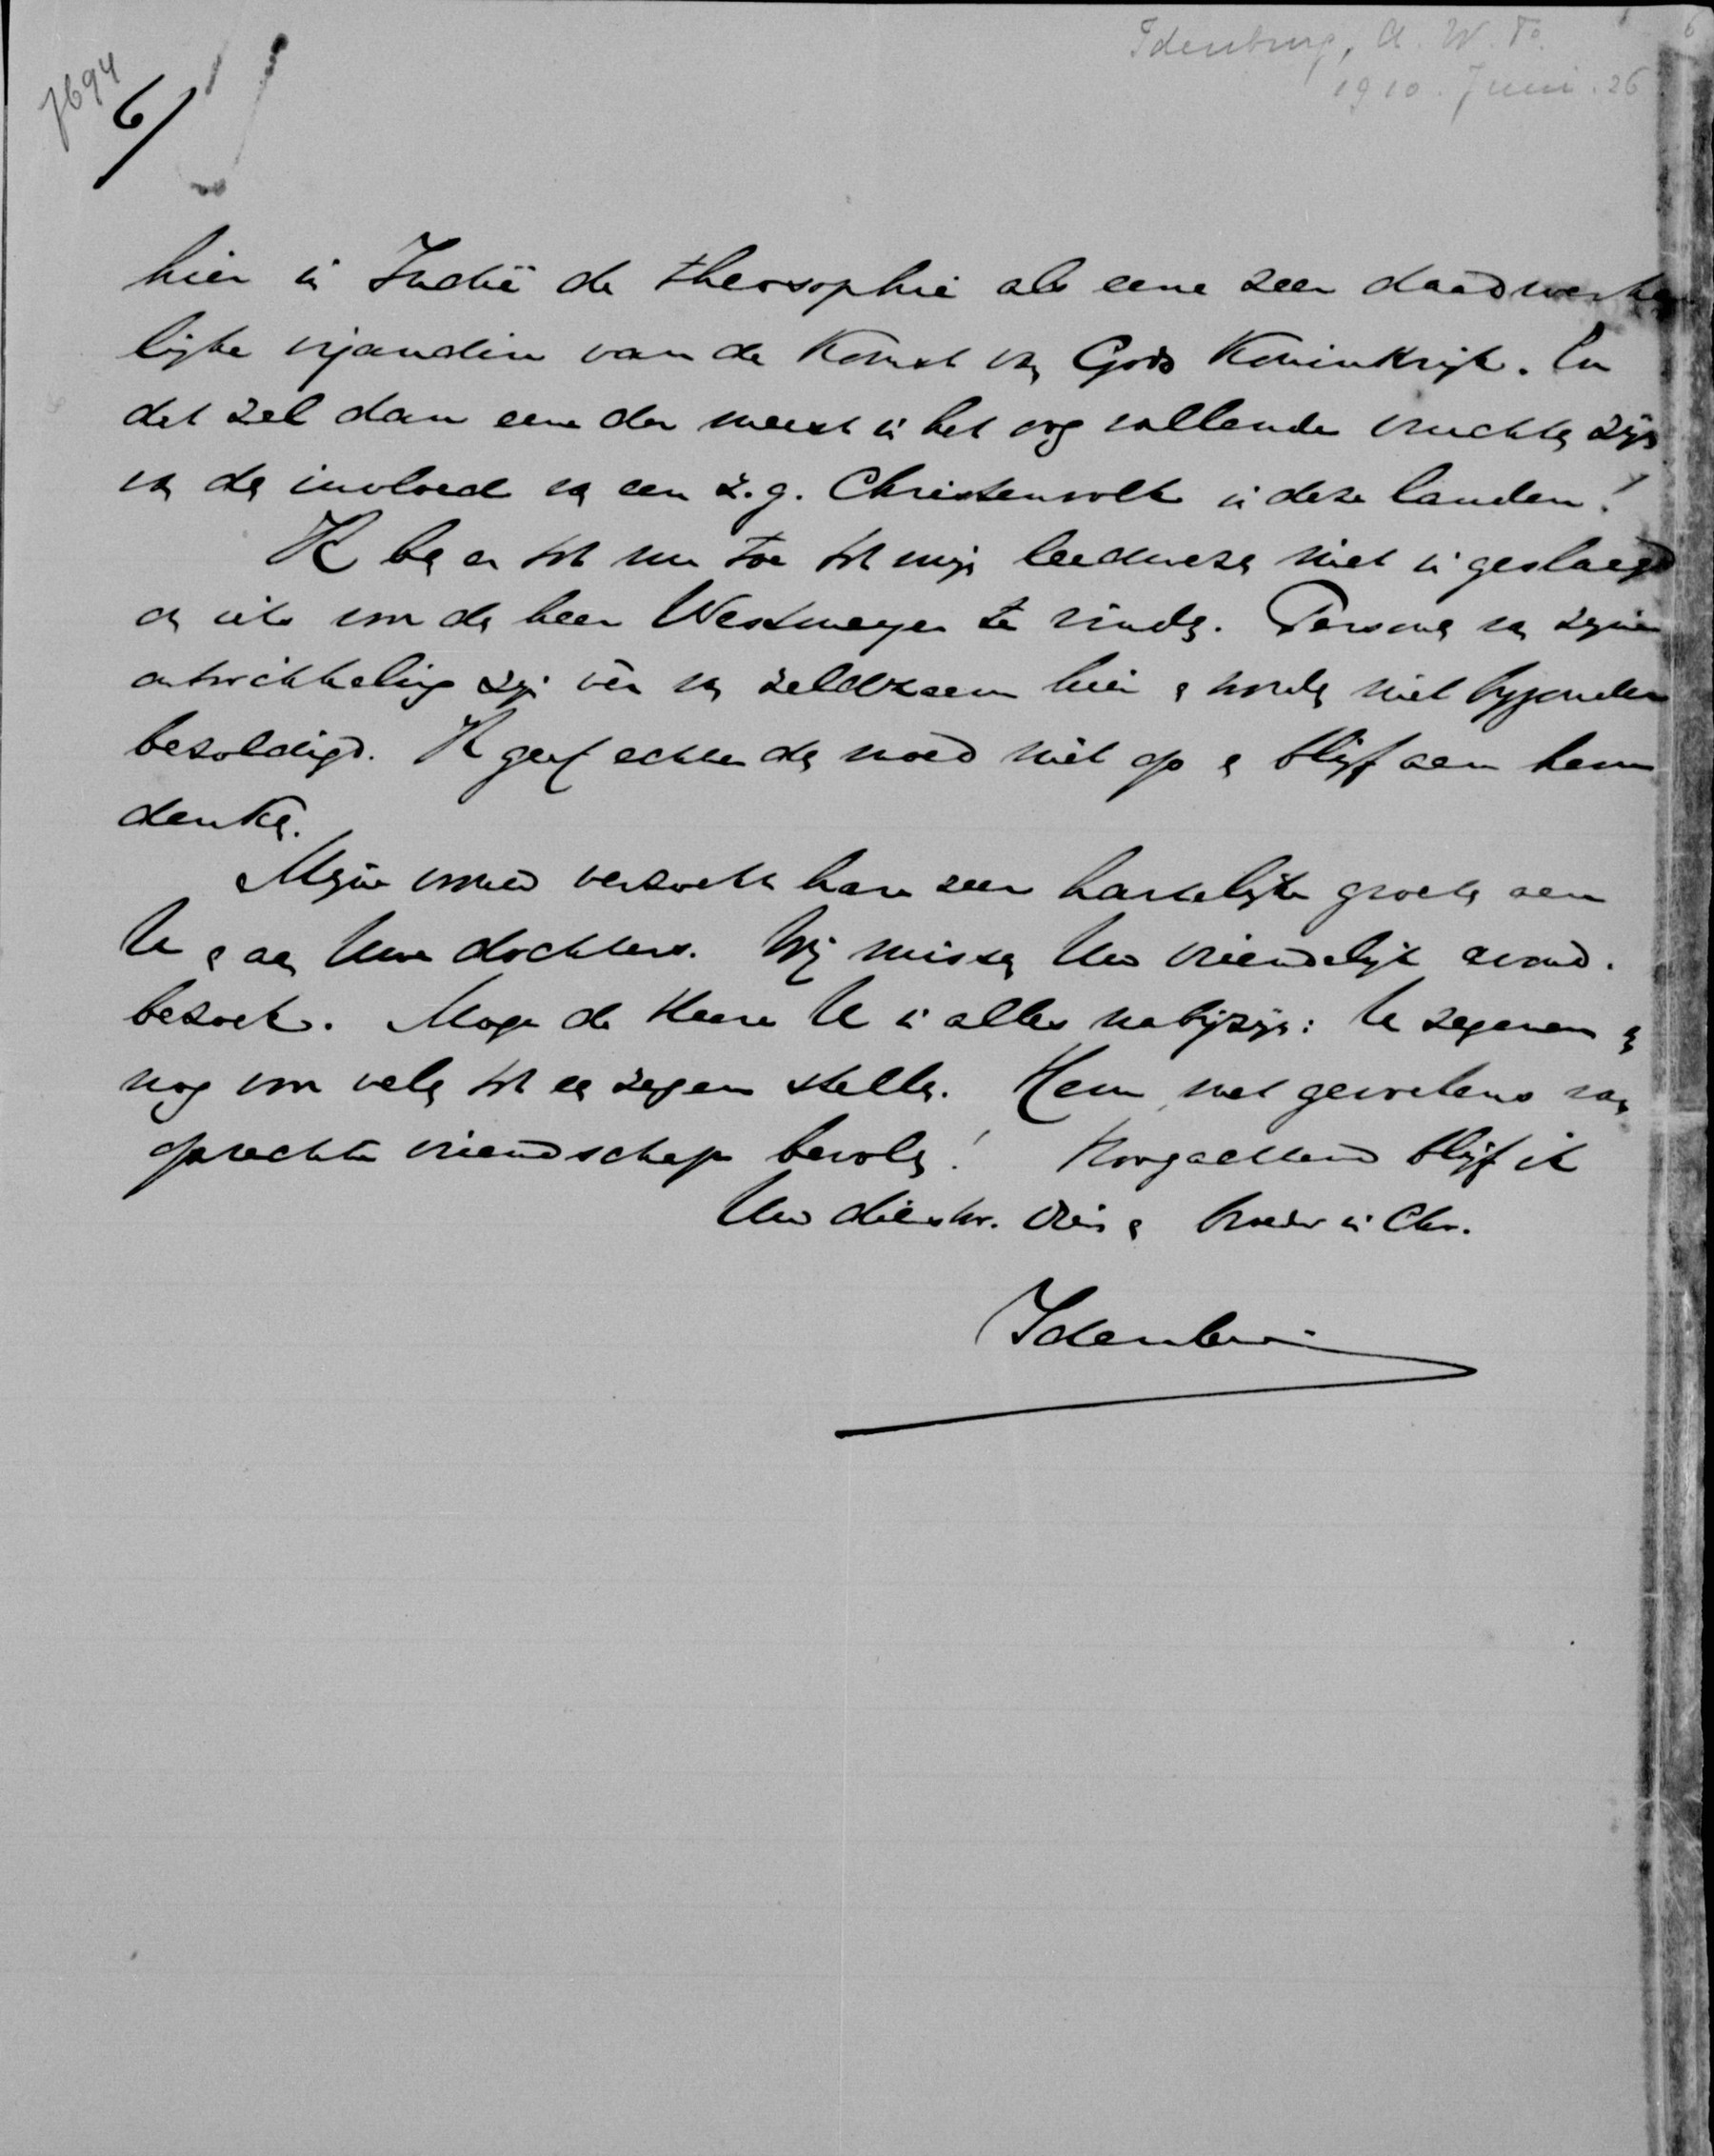 Idenburg, A. W. F.
1910. Juni. 26
7694
6/
hier in Indië de theosophie als eene zeer daadwerke
lijke vijandin van de komst van Gods Koninkrijk. En
dat zal dan eene der meest in het oog vallende vruchten zijn
van den invloed van een z.g. Christenvolk in deze landen!
Ik ben er tot nu toe tot mijn leedwezen niet in geslaagd
om iets voor den heer Westmeyer te vinden. Personen van zijne
ontwikkeling zijn vèr van zeldzaam hier en worden niet bijzonder
bezoldigd. Ik geef echter den moed niet op en blijf aan hem
denken.
Mijne vrouw verzoekt hare zeer hartelijke groeten aan
U en aan Uwe dochters. Wij missen Uw vriendelijk avond.
bezoek. Moge de Heere U in alles nabijzijn: U zegenen en
nog voor velen tot een zegen stellen. Hem met gevoelens van
oprechte vriendschap bevolen! Hoogachtend blijf ik
Uw dienstv. vriend en broeder in Chr.
Idenburg